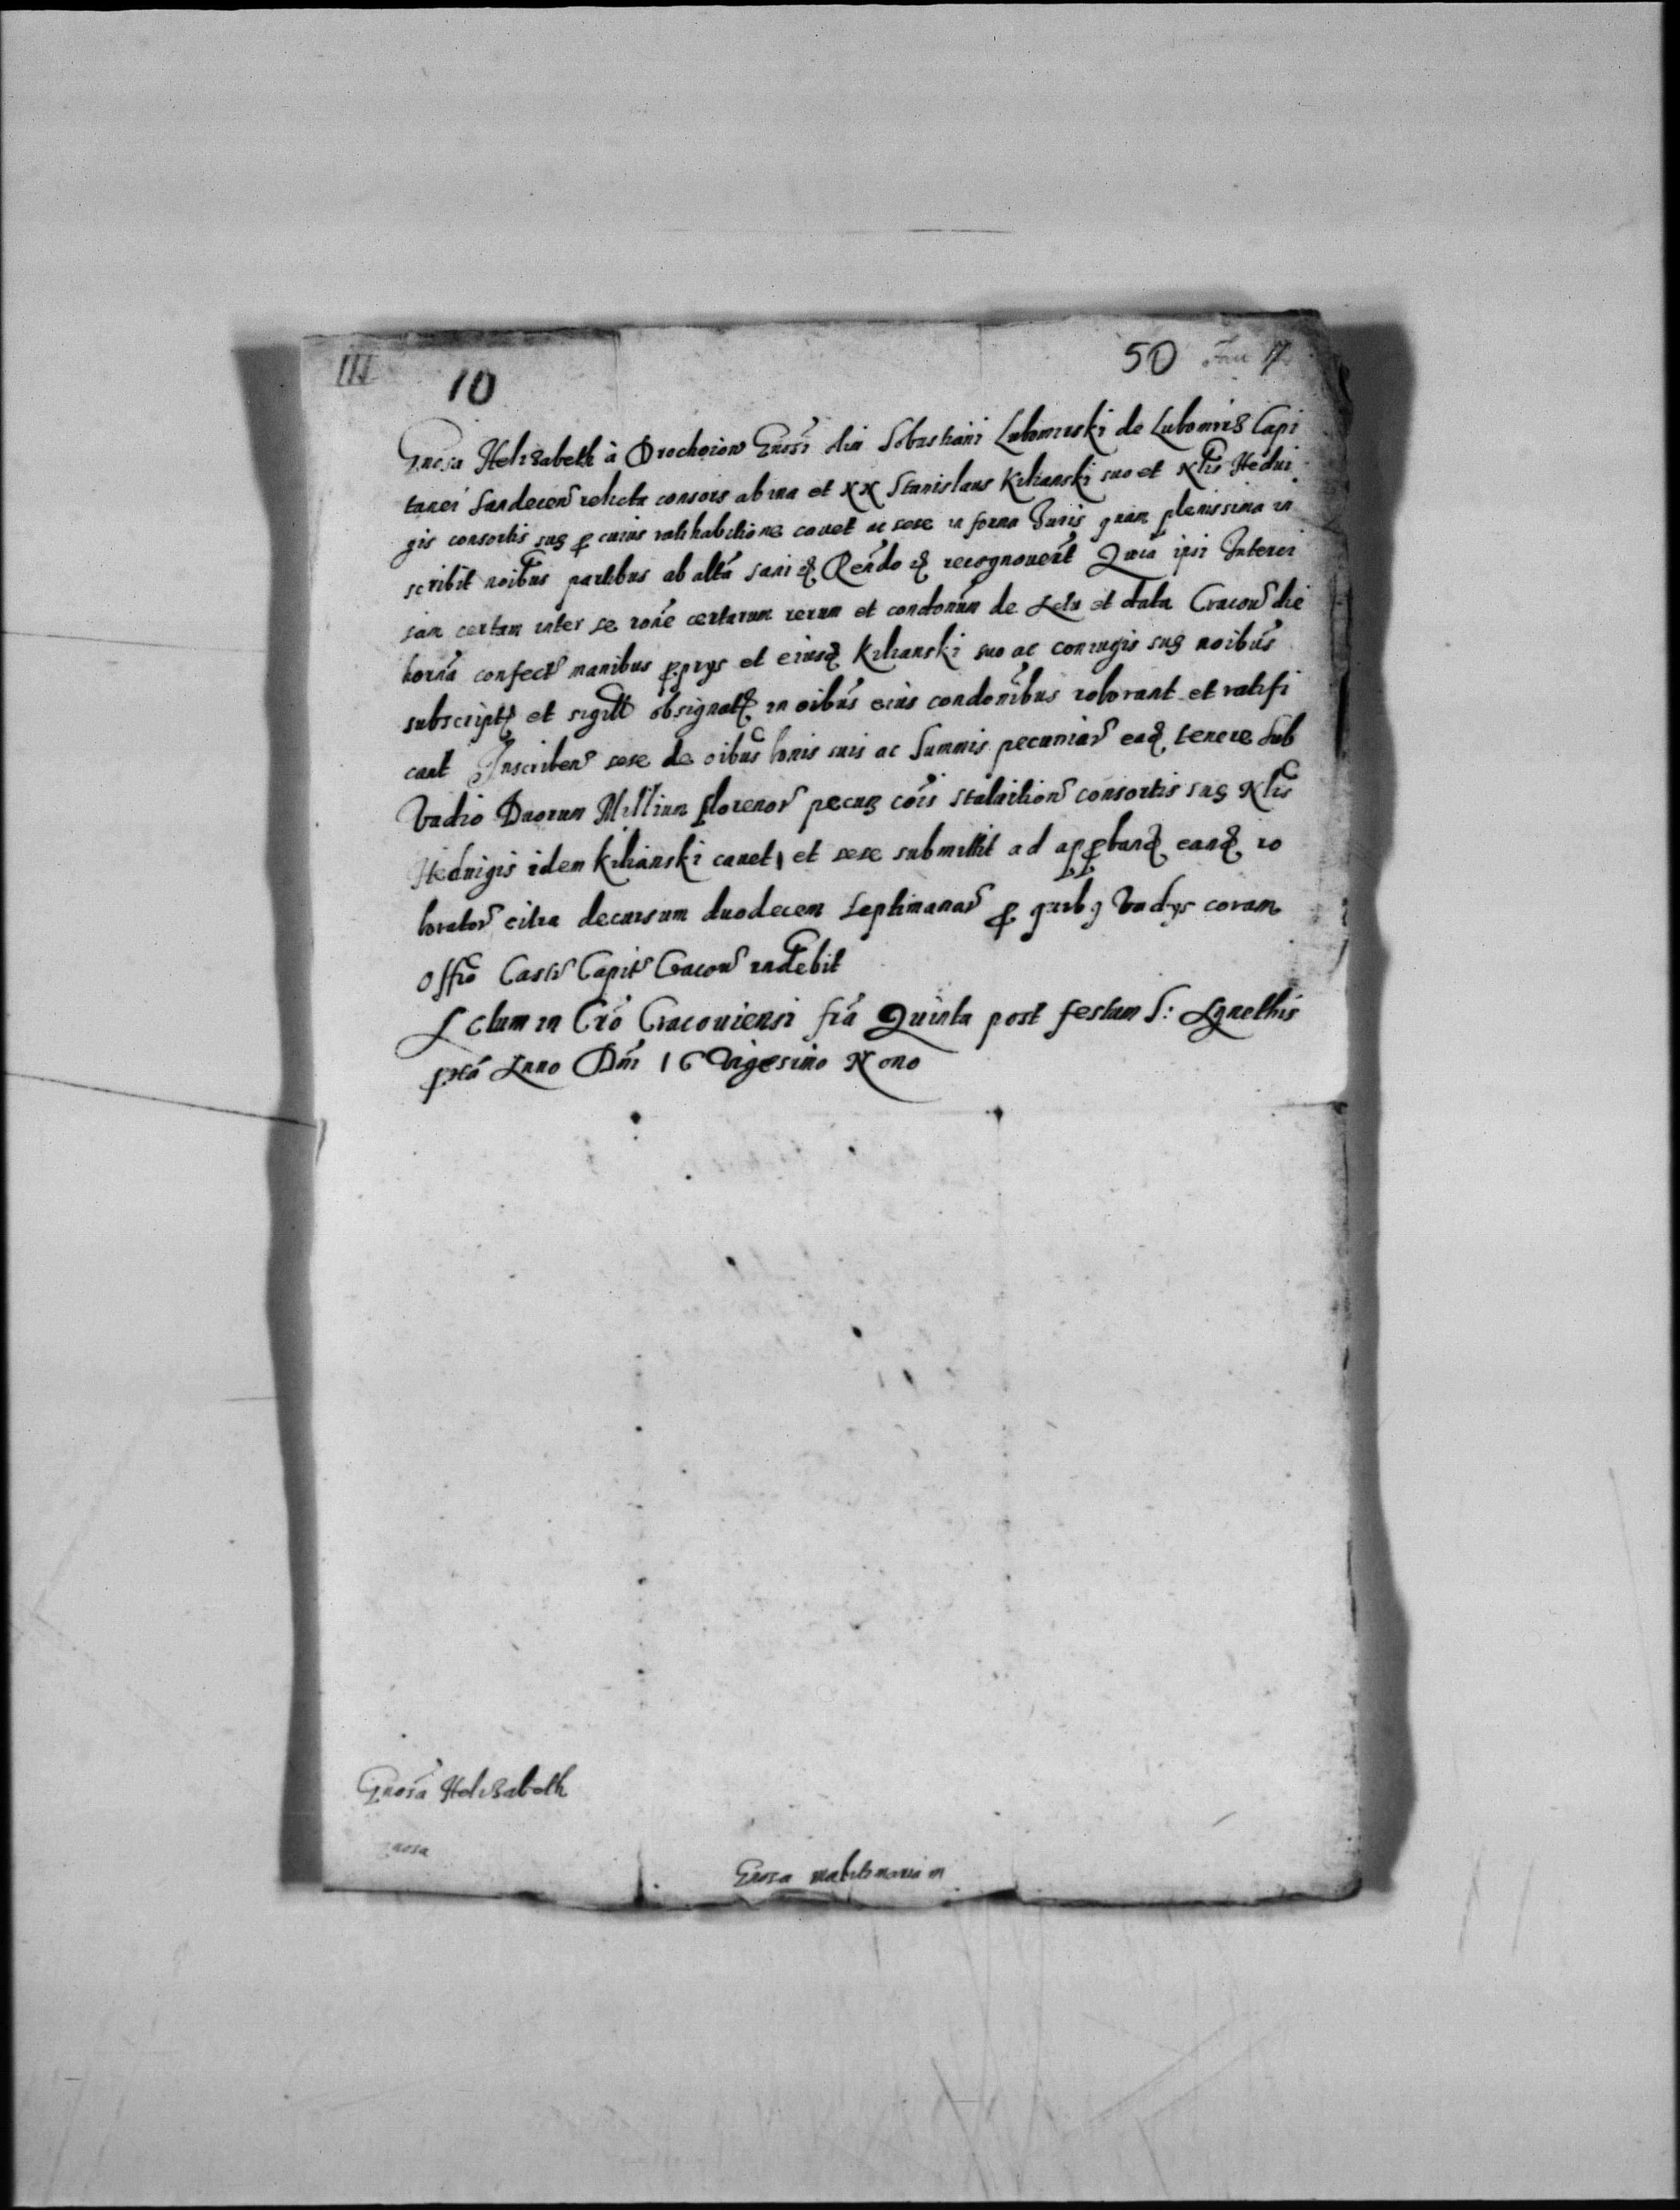 III 10 50
Gnosa Helizabeth à Drochoiow Gnosi olim Sebastiani Lubomirski de Lubomirz Capi
tanei Sandecen relicta consors ab una et NN Stanislaus Kilianski suo et Nlis Hedui
gis consortis suę p cuius ratihabitione cavet ac sese in forma Iuris quam plenissima in
scribit noibus partibus ab altã sani q Rendo q recognouert Quia ipsi Interci
sam certam inter se rone certarum rerum et condonum de Actu et data Cracou die
horna confect manibus pprys et eiusq Kilianski suo ac coniugis suę noibus
subscript et sigill obsignat in oibus eius condonibus roborant et ratifi
cant Inscriben sese de oibus bonis suis ac Summis pecuniar eaq tenere Sub
Vadio Duorum Millium florenor pecuę cois stalution consortis suę Nlis
Heduigis idem Kilianski cauet et sese submittit ad appband eanq ro
borator citra decursum duodecem Septimanar p quibg Vadys coram
Offio Castr Capit Cracou indebit
Actum in Cro Cracouiensi fra Quinta post festum S: Agnethis
pxa Anno Dni 16 Vigesimo Nono
Gnosa Helizabeth
nosa
Gnosa